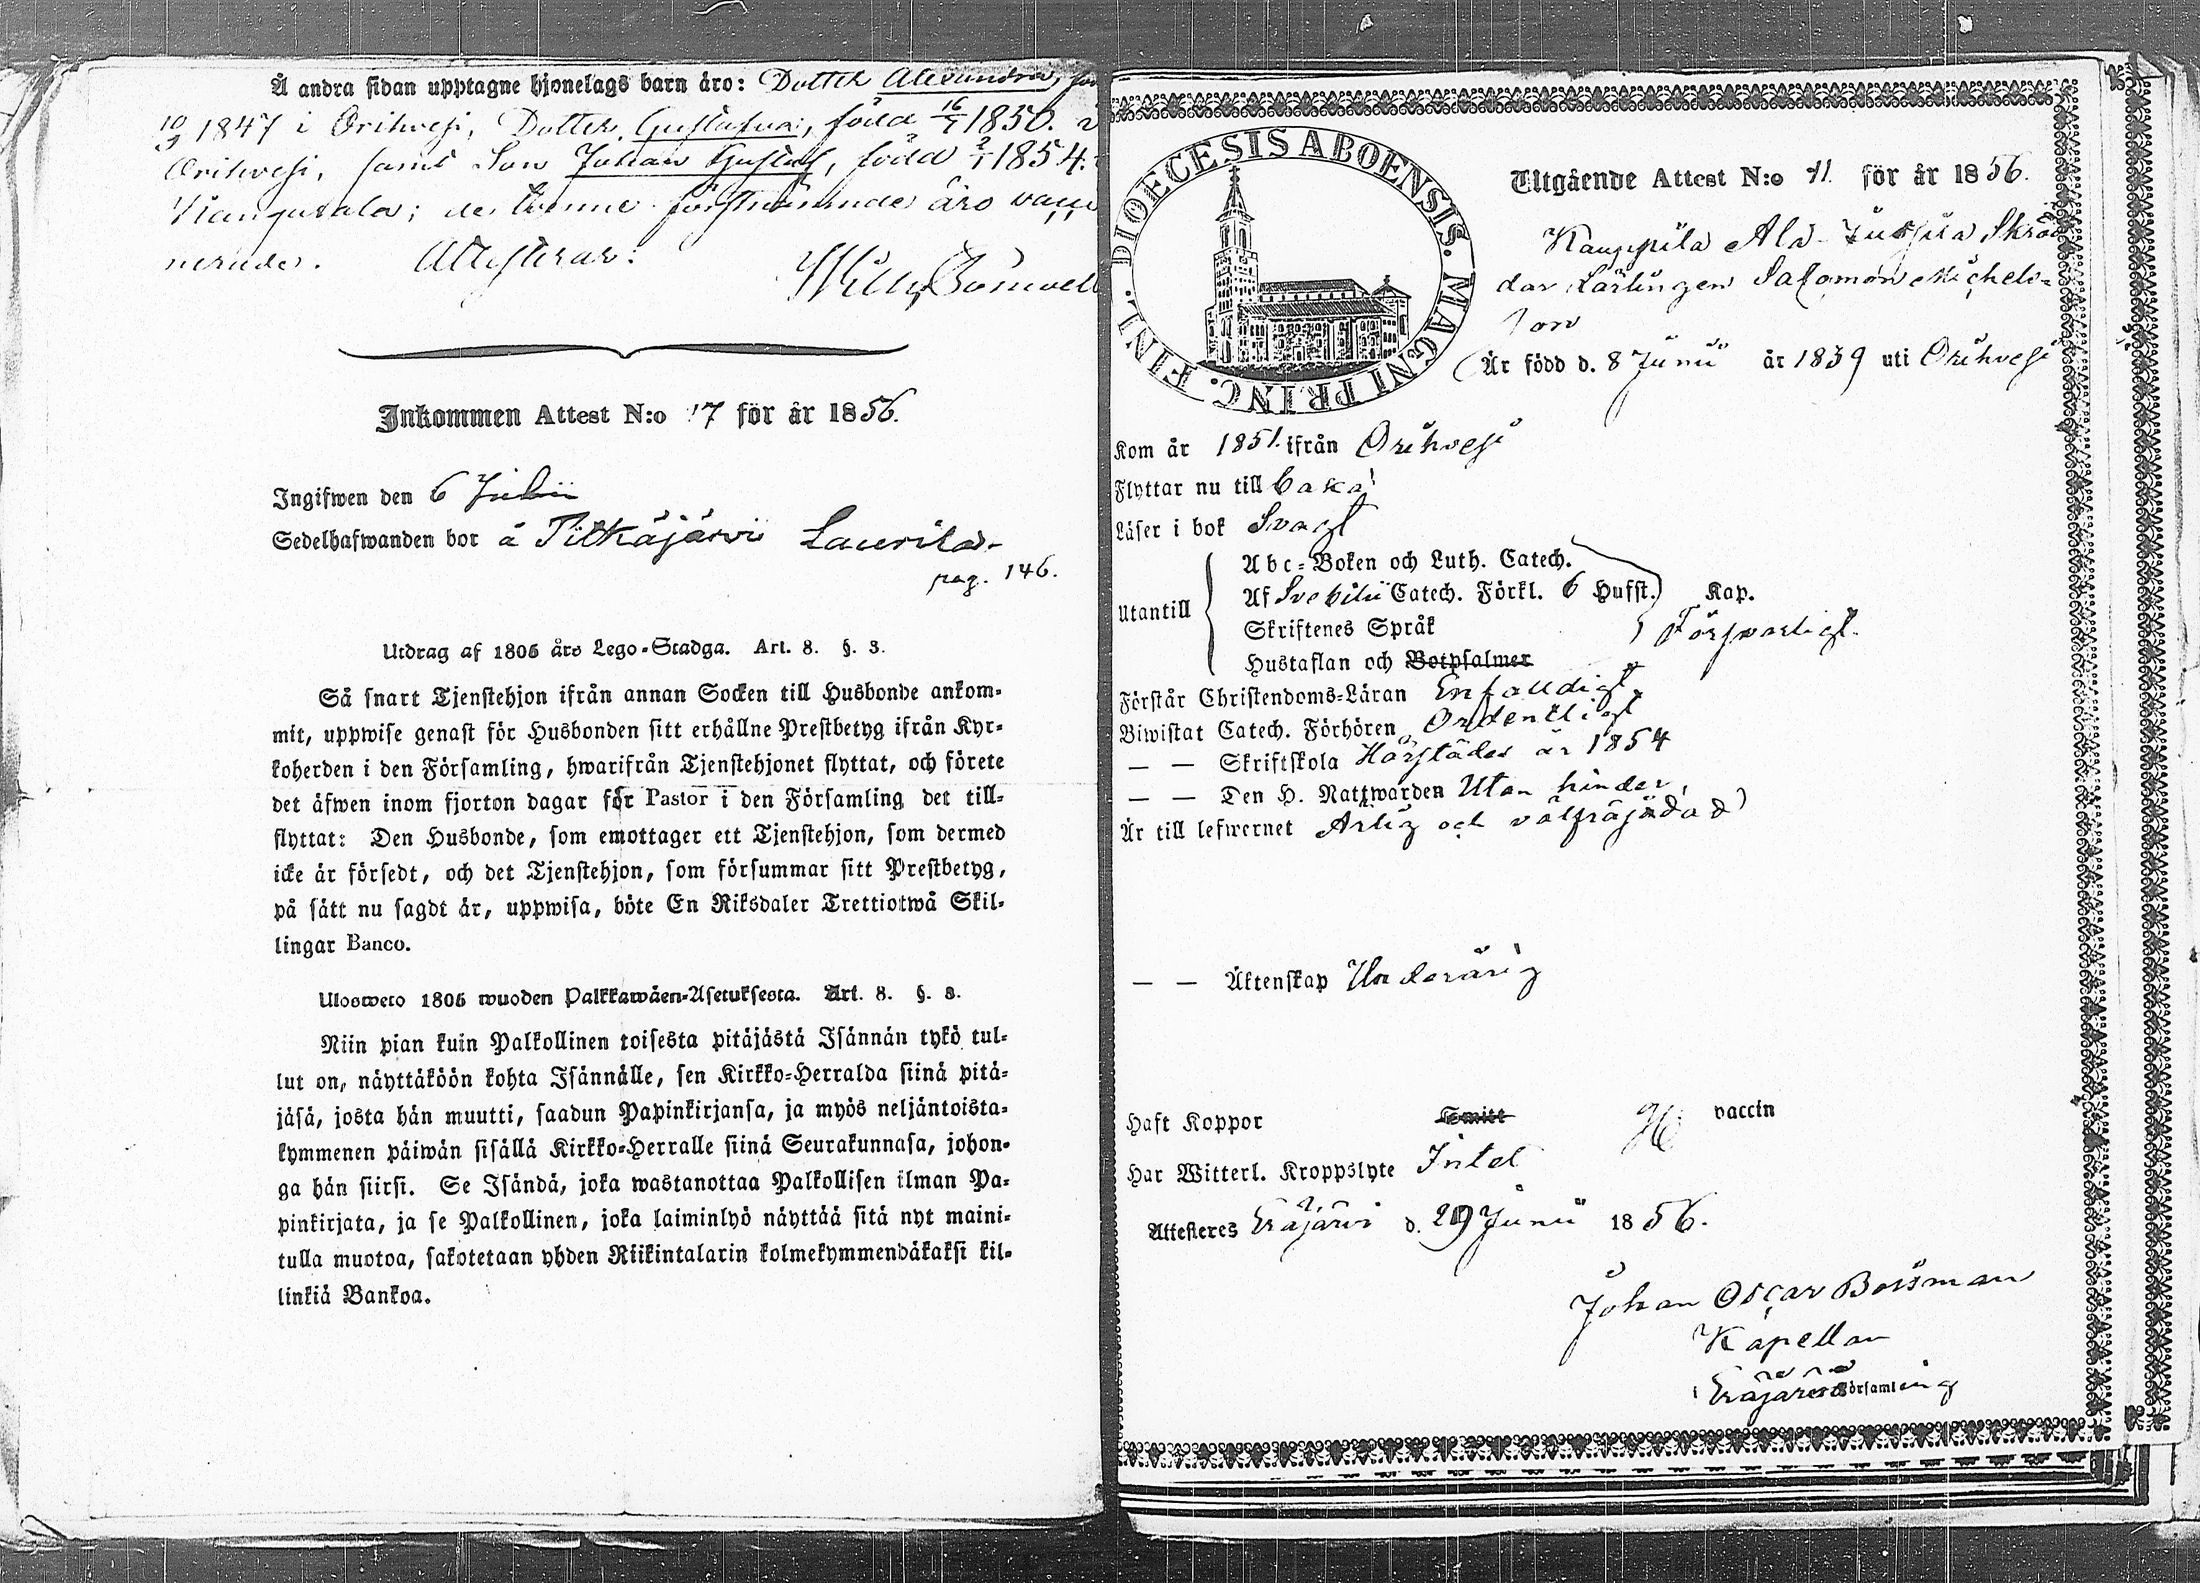 Å andra sidan upptagne hjonelags barn äro: Dotter Alexandra,
10/9 1847 i Orihvesi, Dotter Gustafva, född 16/7 1850.
Orihvesi, samt Son Johan Gustaf, född 2/1 1854.
Kangasala; de tvenne förstnämnde äro vacci
nerade. Attesterar:
Inkommen Attest N:o 17 för år 1856.
Ingifwen den 6 Julii
Sedelhafwanden bor å Pitkäjärvi Laurila
pag. 146.
Utdrag af 1805 års Lego-Stadga. Art. 8. §. 3.
Så snart Tjenstehjon ifrån annan Socken till Husbonde ankom-
mit, uppwise genast för Husbonden sitt erhållne Prestbetyg ifrån Kyr-
koherden i den Församling, hwarifrån Tjenstehjonet flyttat, och förete
det äfwen inom fjorton dagar för Pastor i den Församling det till-
flyttat: Den Husbonde, som emottager ett Tjenstehjon, som dermed
icke är försedt, och det Tjenstehjon, som försummar sitt Prestbetyg,
på sätt nu sagdt är, uppwisa, böte En Riksdaler Trettiotwå Skil-
lingar Banco.
Ulosweto 1805 wuoden Palkkawäen-Asetuksesta. Art. 8. §. 3.
Niin pian kuin Palkollinen toisesta pitäjästä Isännän tykö tul-
lut on, näyttäköön kohta Isännälle, sen Kirkko-Herralda siinä pitä-
jäsä, josta hän muutti, saadun Papinkirjansa, ja myös neljäntoista-
kymmenen päiwän sisällä Kirkko-Herralle siinä Seurakunnasa, johon-
ga hän siirsi. Se Isändä, joka wastanottaa Palkollisen ilman Pa-
pinkirjata, ja se Palkollinen, joka laiminlyö näyttää sitä nyt maini-
tulla muotoa, sakotetaan yhden Riikintalarin kolmekymmendäkaksi kil-
linkiä Bankoa.
DIOECESIS ABOENSIS. MAGNI PRINC. FINL.
Utgående Attest N:o 11 för år 1856.
Kauppila Ala-Juusila Skräd
dar Lärlingen Salomon Michels-
son
Är född d. 8 Junii år 1839 uti Orihvesi
Kom år 1851. ifrån Orihvesi
Flyttar nu till
Läser i bok Svagt
Utantill
Abc-Boken och Luth. Catech.
Af Svebilii Catech. Förkl. 6 Hufst. Kap.
Skriftenes Språk Försvarligt.
Hustaflan och Botpsalmer
Förstår Christendoms-Läran Enfaldigt
Biwistat Catech. Förhören Ordentligt
— — Skriftskola Härstädes år 1854
— — Den H. Nattwarden Utan hinder,
Är till lefwernet Ärlig och välfräjdad
— — Äktenskap Underårig
Haft Koppor Smitt vaccin
Har Witterl. Kroppslyte Intet
Attesteres Eräjärvi d. 29 Junii 1856.
Johan Oscar Bossman
Kapellan
i Eräjärvi Församling